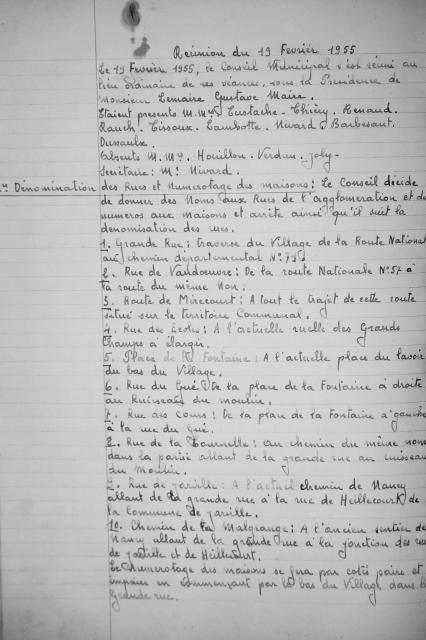 Réunion du 19 Fevrier 1955
Le 19 Fevrier 1955, le Conseil Municipal s'est réuni au
lieu ordinaire de ses séances, sous la Presidence de
Monsieur Lemaire Gustave Maire.
Etaient presents M.M. Eustache - Thiéry - Renaud.
Rauch. Tissoux. Lambotte. Nivard & Barbesant.
Absents M.M. Houillon. Verdun. Joly -
Secrétaire : Mr Nivard.
Dénomination des Rues et Numerotage des maisons : Le Conseil décide
de donner des Noms aux Rues de l'agglomeration et de
numeros aux maisons et arrête ainsi qu'il suit la
dénomination des rues.
1. Grande Rue : traverse du Village de la Route National
au chemin départemental N°
2. Rue de Vandoeuvre : De la route Nationale N° 57 à
la route du même Non.
3. Route de Mirecourt : A tout le trajet de cette route
situé sur le territoire Communal.
4. Rue des Ecoles : A l'actuelle ruelle des Grands
Champs à élargir.
5. Place de la Fontaine : A l'actuelle place du lavoir
du bas du Village.
6. Rue du Gué : De la place de la Fontaine à droite
au Ruisseau du moulin.
7. Rue des Cours : De la place de la Fontaine à gauche
à la rue du Gué.
8. Rue de la Tournelle : au chemin du même nom
dans la partie allant de la grande rue au ruisseau
du Moulin.
9. Rue de Jarville : A l'actuel chemin de Nancy
allant de la grande rue à la rue de Heillecourt de
la commune de Jarville.
10. Chemin de la Malgrange : A l'ancien sentier de
Nancy allant de la grande rue à la jonction des rues
de Jarville et de Heillecourt.
Le Numerotage des maisons se fera par coté paire et
impaire en commençant par le bas du Village dans la
Grande rue.